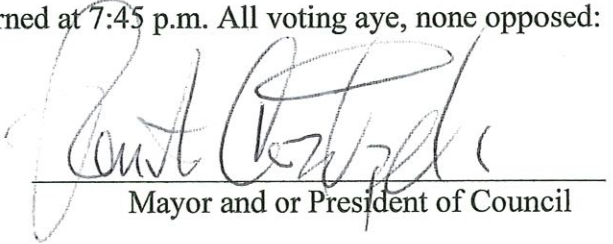 rned at 7:45 p.m. All voting aye, none opposed:
Mayor and or President of Council